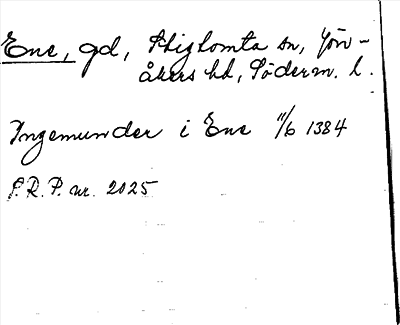 Ene, gd, Stigtomta sn, Jön-
åkers hd, Söderm. l.
Ingemunder i Ene 11/6 1384
S.R.P. nr. 2025